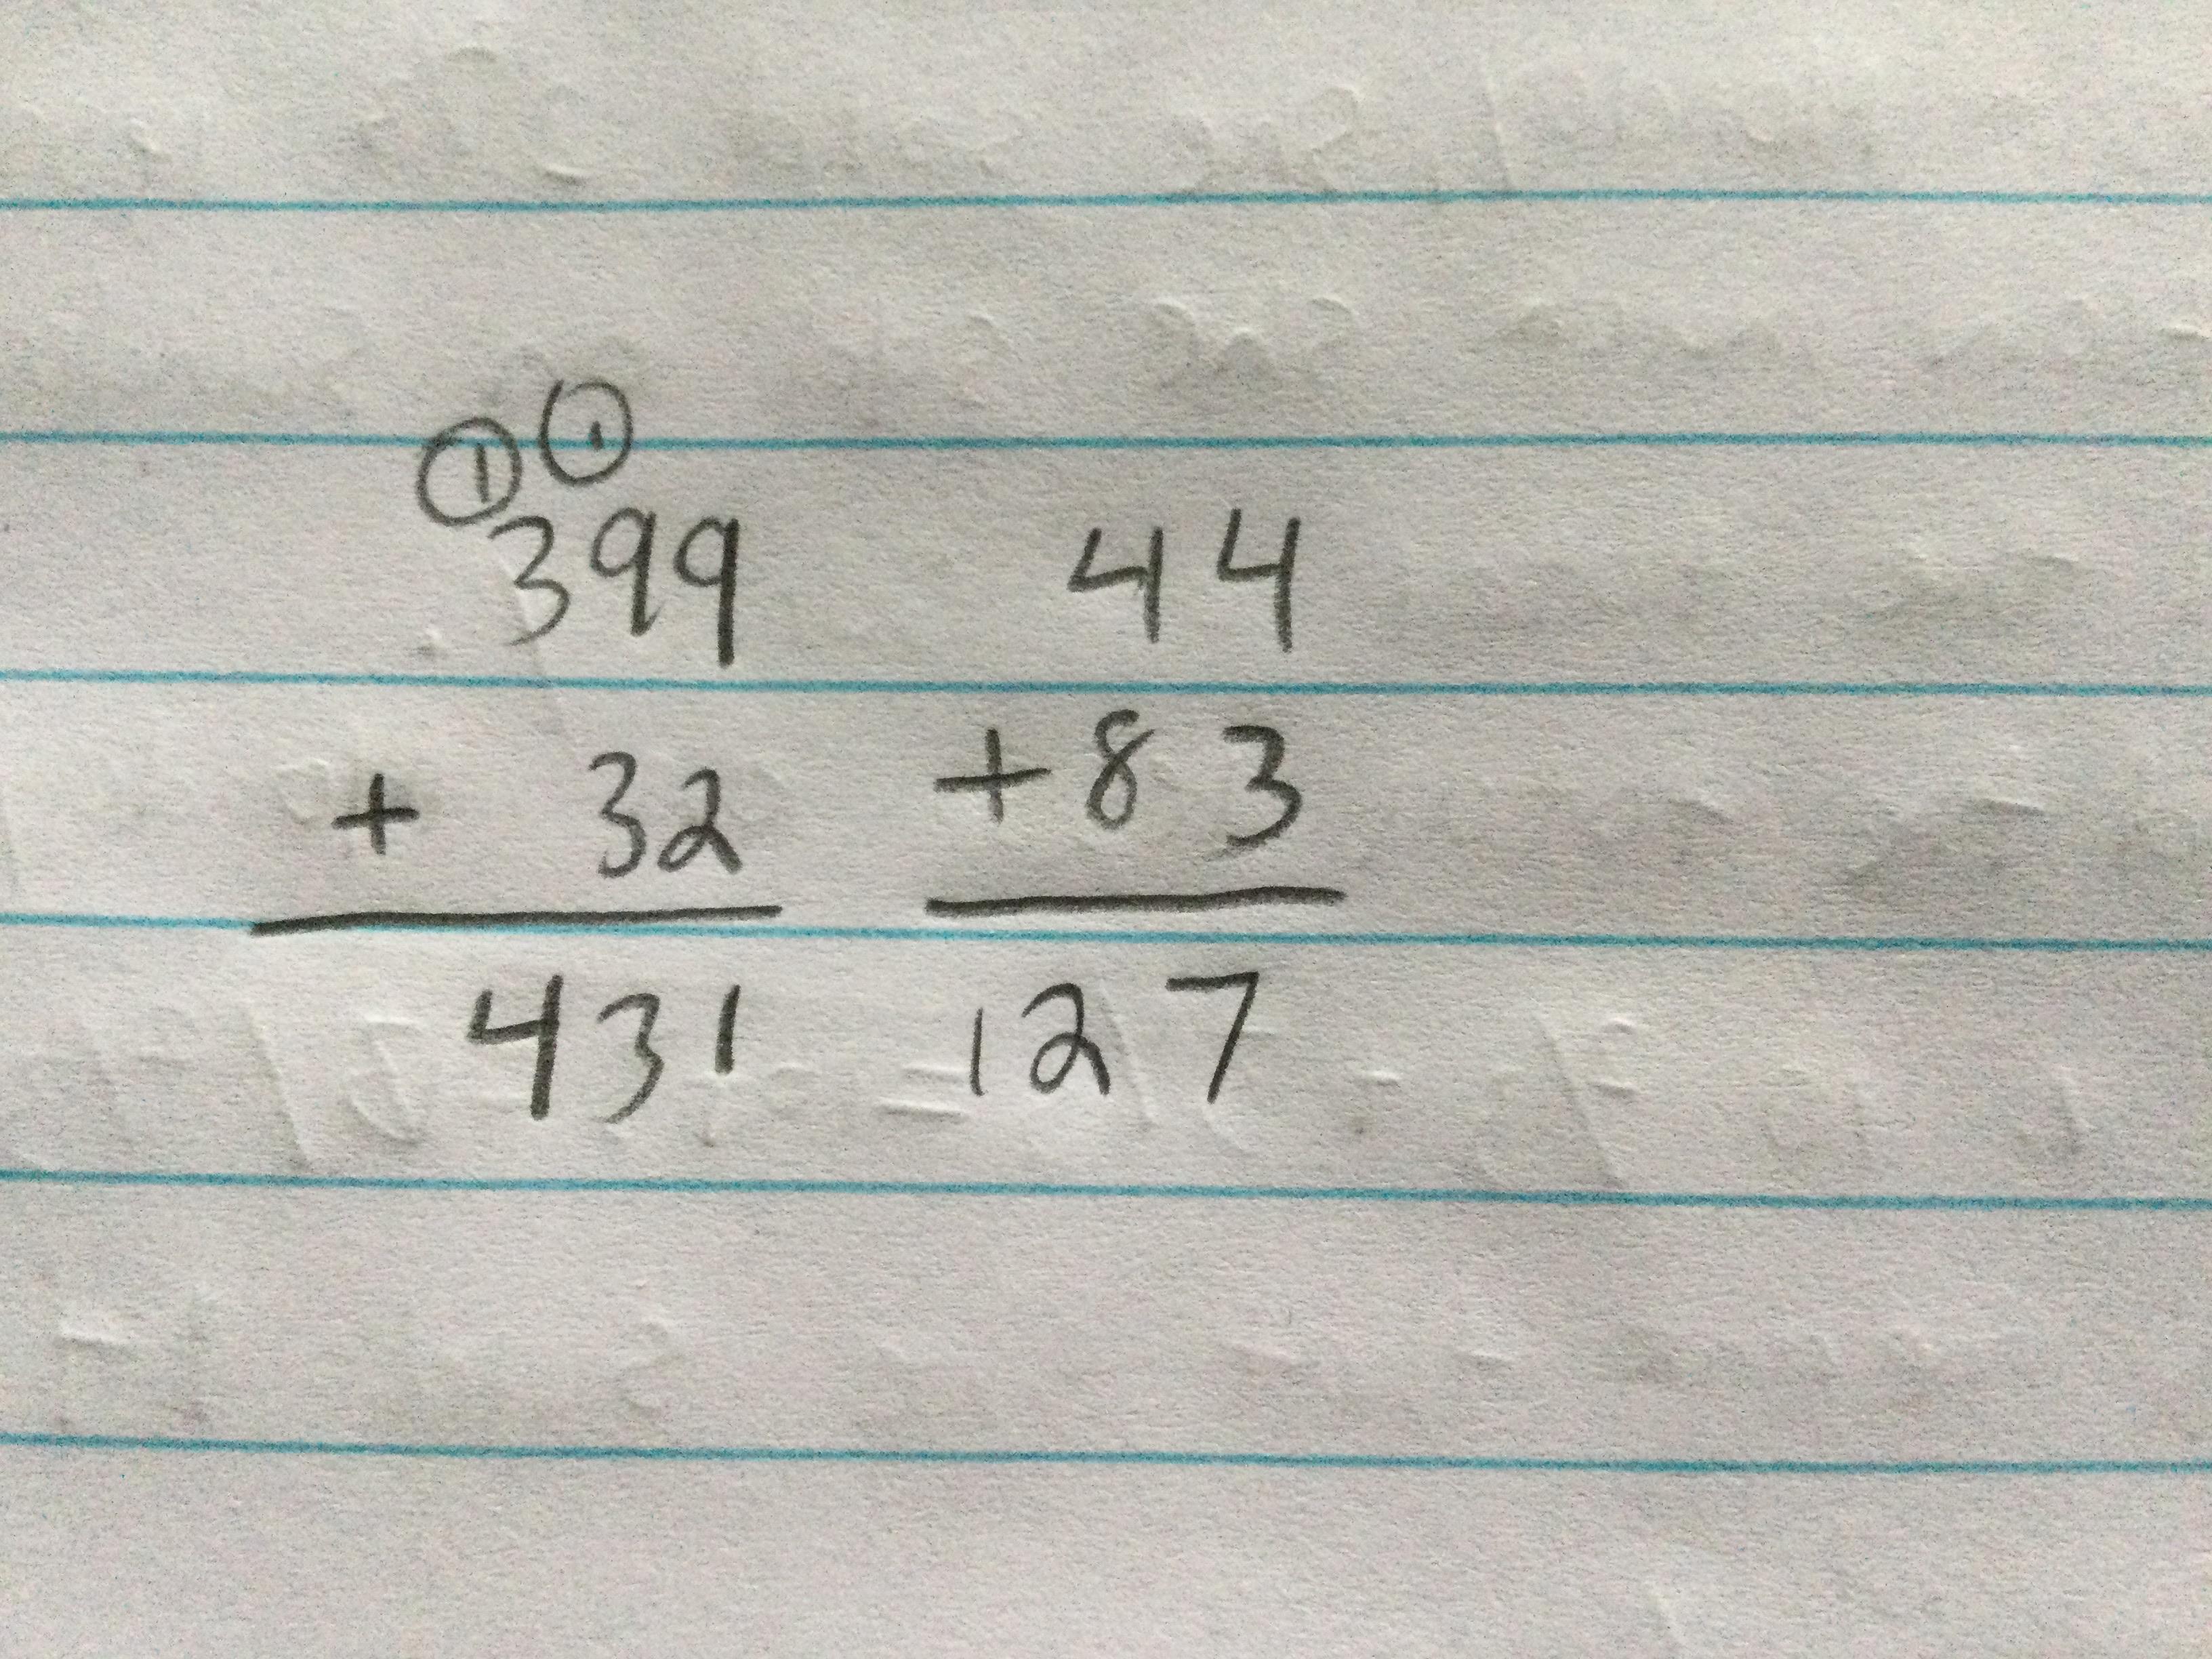 ① ①
399 44
+ 32 +83
431 127